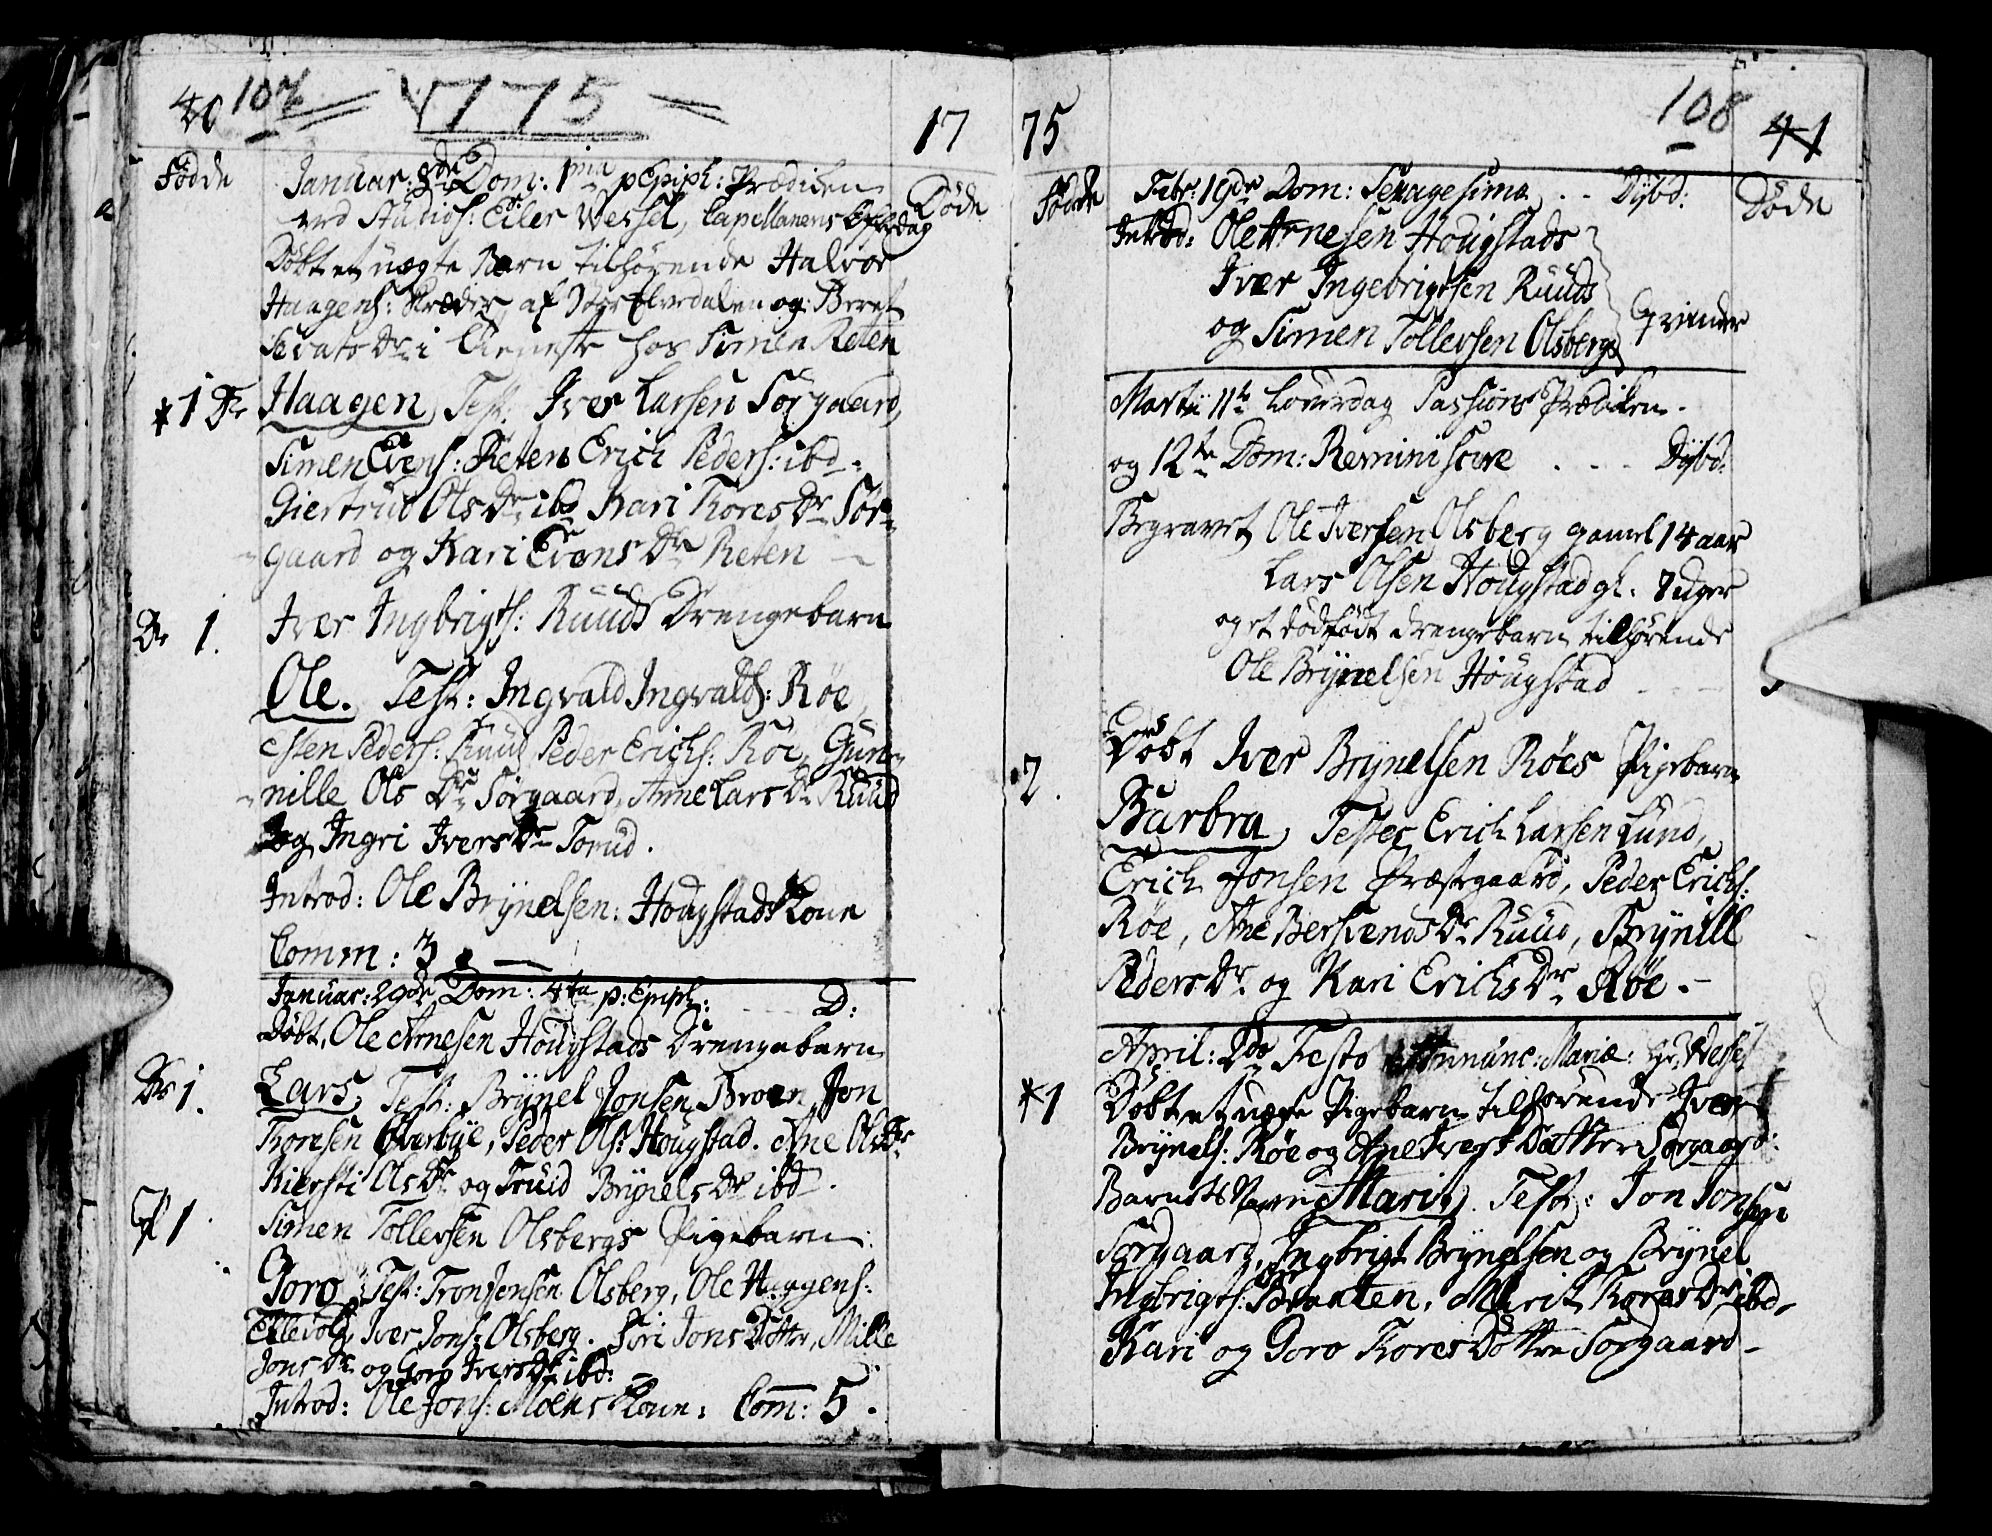 40 107 1775 17
Fødde Januar: 8de Dom: 1ma p Epiph: Prædiken Døde
ved Studios: Eiler Wessel, Capellanens
Døbt et uægte Barn tilhørende Halvor
Haagens: Skræder af Stor Elverdalen og Beret
Sevats Dr i tieneste hos Simen Reten
*1 Haagen, Test: Iver Larsen Sørgaard,
Simen Evens: Reten Erich Peders: ibd.
Giertrud Ols Dr ibd Kari Thores Dr Sør-
gaard og Kari Evens Dr Reten
Dr 1. Iver Ingbrigts: Ruuds Drengebarn
Ole. Test: Ingvald Ingvalds: Røe,
Esten Peders: Ruud Peder Erichs: Røe, Gun-
nille Ols Dr Sørgaard, Anne Lars Dr Ruud
og Ingri Ivers Dr Tomd.
Introd: Ole Brÿnelsen: Hougstads Kone
Comm: 3
Januar: 29de Dom: 4ta p: Epiph: D:
Døbt, Ole Arnesen Hougstads Drengebarn
Dr 1. Lars, Test: Brÿnel Jonsen Broen Jon
Thoresen Øverbÿe, Peder Ols: Hougstad. Ane Ols Dr
Kiersti Ols Dr og Truid Brÿnels Dr ibd.
P 1 Simen Tollefsen Olsbergs Pigebarn
Goro, Test: Tron Jensen Olsberg, Ole Haagens:
Ellevold, Iver Jons: Olsberg. Siri Jons Dotter, Mille
Jons Dr og Goro Ivers Dr ibd:
Introd: Ole Jons: Moens Kone: Com: 5.
75 108 41
Fødde Febr: 19de Dom: Sexagesima .. Dÿbd: Døde
Introd: Ole Arnesen Hougstads
Iver Ingebrigtsen Ruuds
og Simen Tollefsen Olsbergs Qvinder
Martii 11te Løverdag Passions Prædiken.
og 12te Dom: Reminiscere . . . Dÿbd:
Begravet Ole Iversen Olsberg gamel 14 aar
Lars Olsen Hougstad gl. 7 uger
og et dødfødt drengebarn tilhørende
Ole Brÿnelsen Hougstad
2. Døbt Iver Brÿnelsen Røes Pigebarn
Barbra, Testes Erich Larsen Lund,
Erich Jonsen Præstgaard, Peder Erichs:
Røe, Ane Bersvends Dr Ruud, Brÿnill
Peders Dr og Kari Erichs Dr Røe.-
April: 2do Festo Annunc: Mariæ: Hr: Wessel
*1 Døbt et uægte Pigebarn tilhørende Iver
Brÿnels: Røe og Ane Ivers Datter Sørgaard:
Barnets Navn Marit. Test: Jon Jonsen
Sørgaard, Ingbrigt Brÿnelsen og Brÿnel
Ingbrigts: Brenten, Marit Thores Dr ibd,
Kari og Goro Thores Døttre Sørgaard-